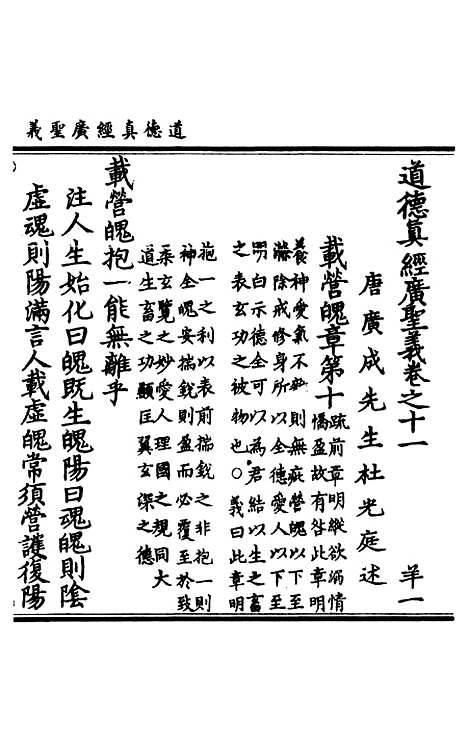 道德真經廣聖義
道德真經廣聖義卷之十一 羊一
唐廣成先生杜光庭述
載營魄章第十 疏前章明縱欲溺情
憍盈故有咎此章明
養神愛氣不虧則無疵營魄以下至
滌除戒修身所以全德愛人以下至
明白示德全可以為君結以生之畜
之表玄功之被物也○義曰此章明
抱一之利以表前揣銳之非抱一則
神全魄安揣銳則盈而必覆至於致
柔玄覽之妙愛人理國之規同大
道生畜之功顯匡翼玄深之德
載營魄抱一能無離乎
注人生始化曰魄既生魄陽曰魂魄則陰
虛魂則陽滿言人載虛魄常須營護復陽